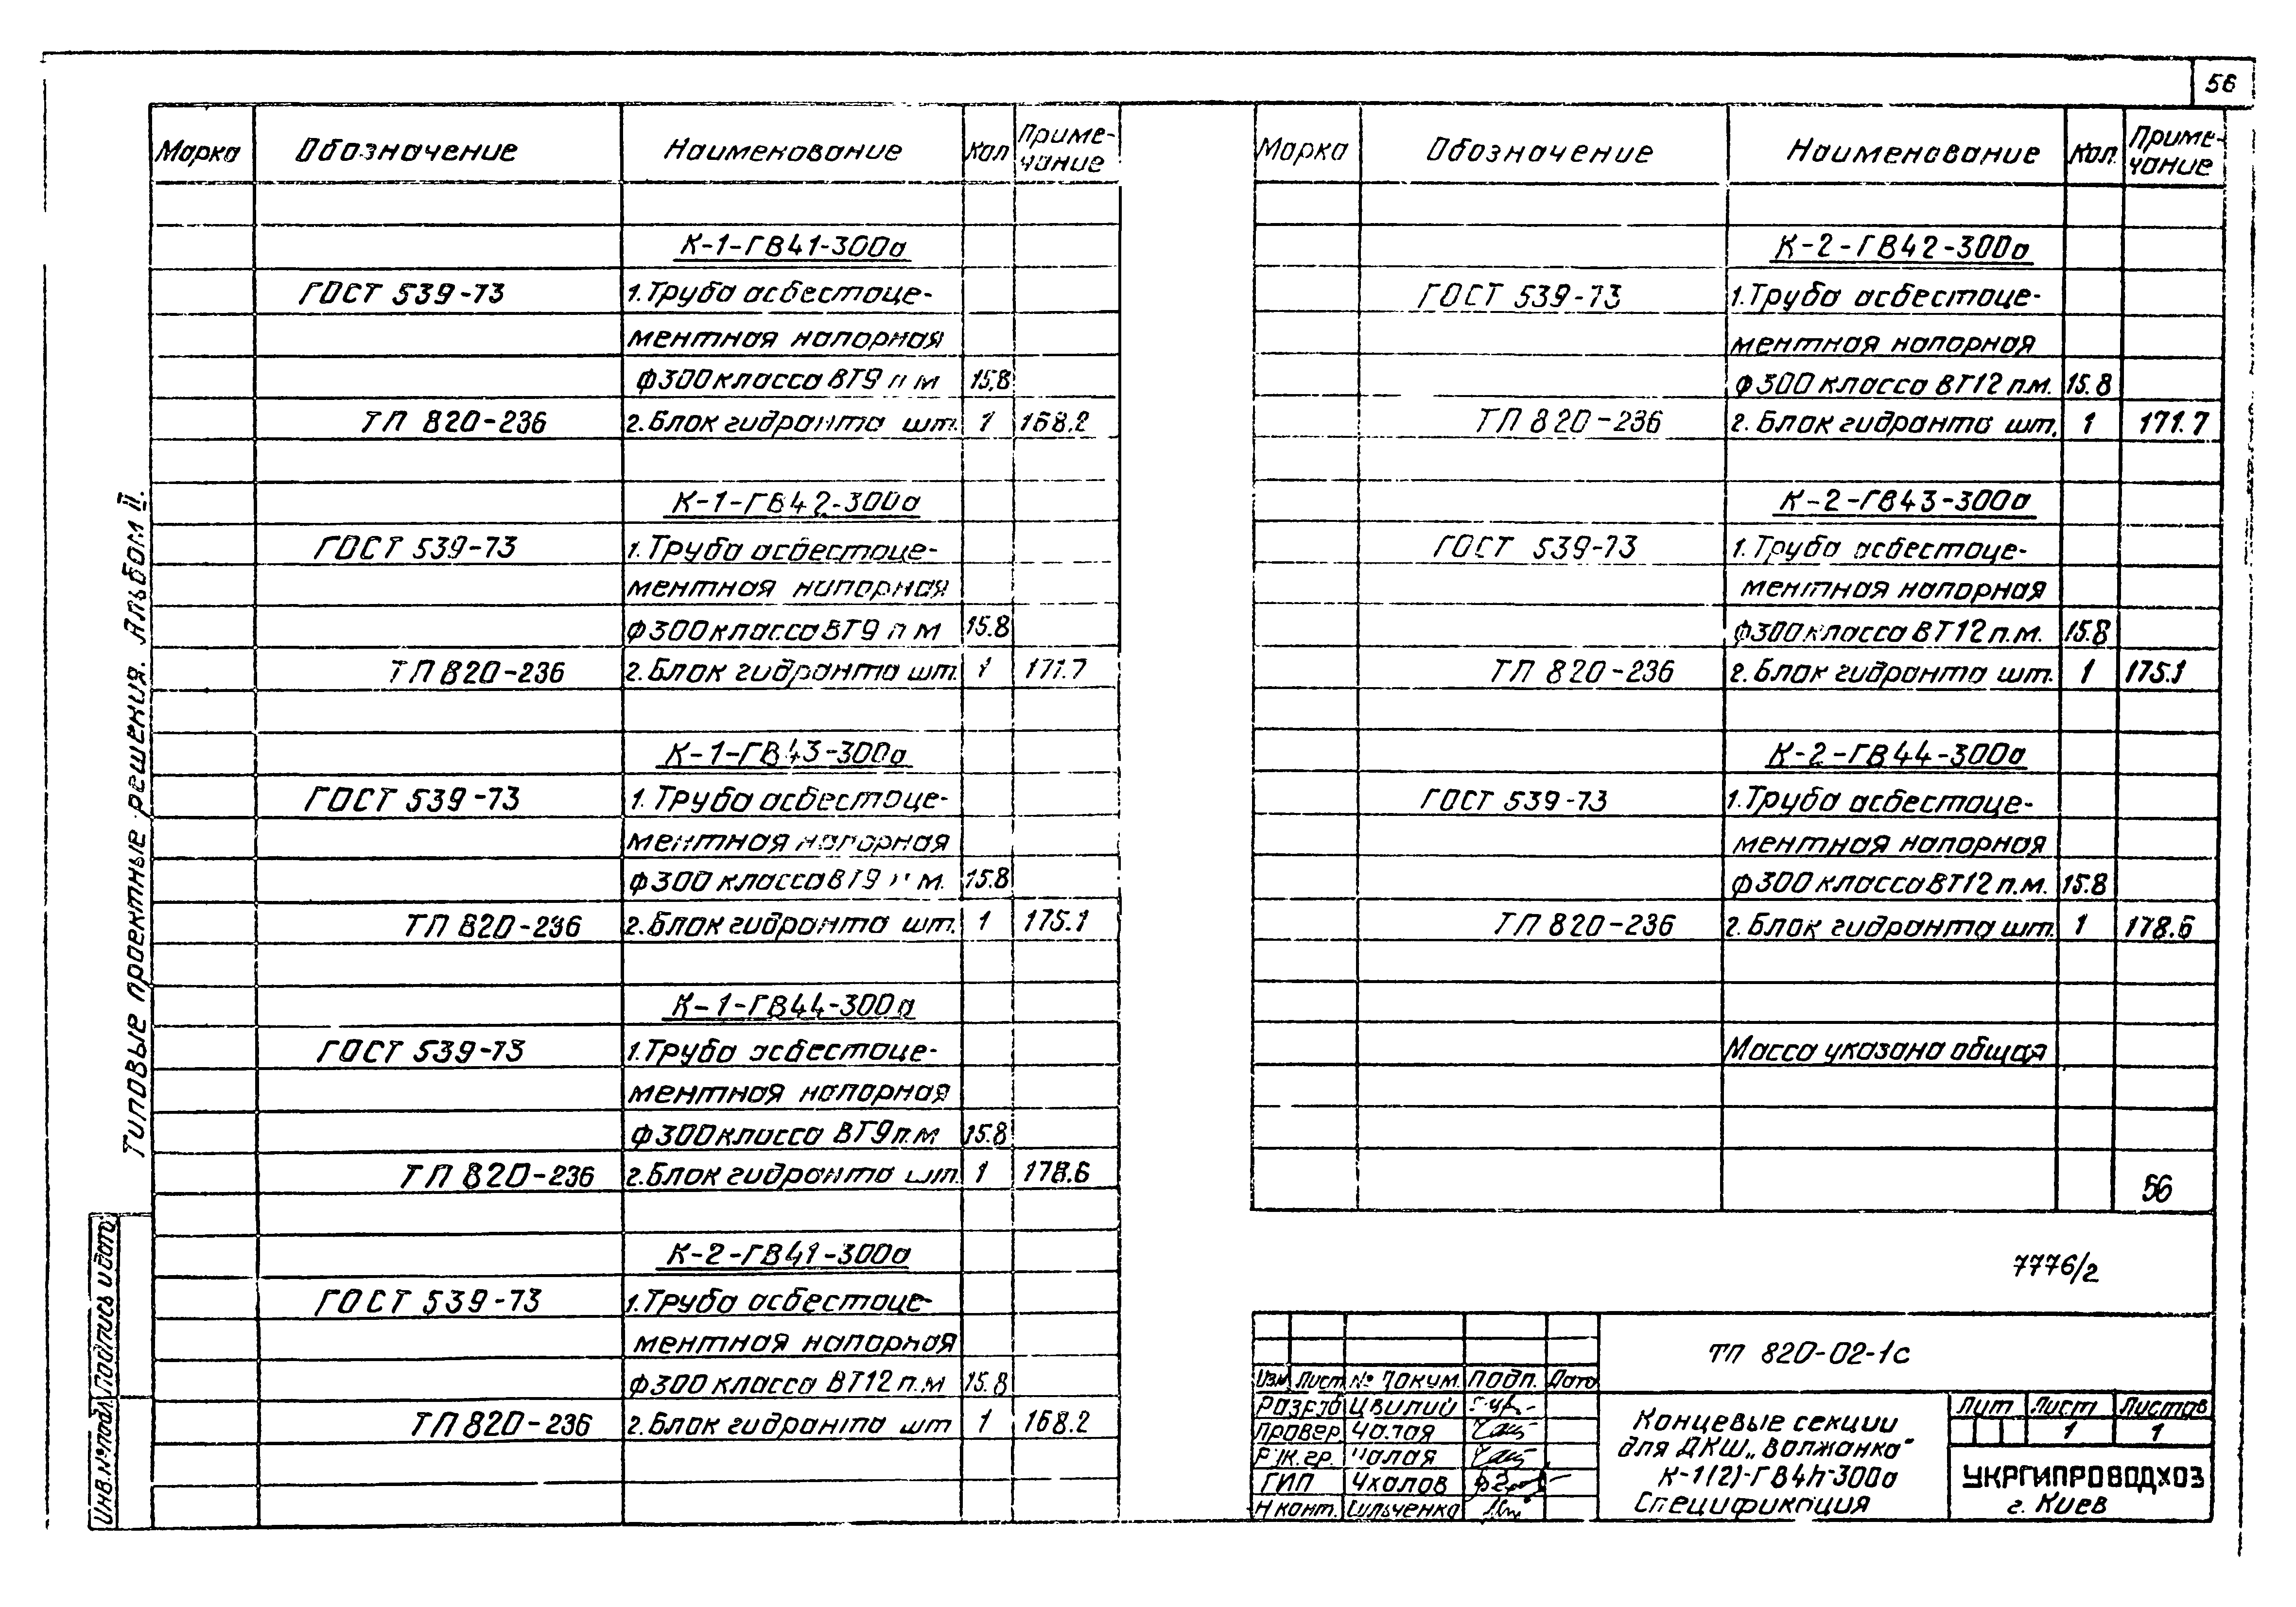 56
Марка Обозначение Наименование Кол Приме-
чание
К-1-ГВ41-300а
ГОСТ 539-73 1. Труба асбестоце-
ментная напорная
ф300 класса ВТ9 п м 15.8
ТП 820-236 2. Блок гидранта шт. 1 168.2
К-1-ГВ42-300а
ГОСТ 539-73 1. Труба асбестоце-
ментная напорная
ф300 класса ВТ9 п м 15.8
ТП 820-236 2. Блок гидранта шт. 1 171.7
К-1-ГВ43-300а
ГОСТ 539-73 1. Труба асбестоце-
ментная напорная
ф300 класса ВТ9 п м. 15.8
ТП 820-236 2. Блок гидранта шт. 1 175.1
К-1-ГВ44-300а
ГОСТ 539-73 1. Труба асбестоце-
ментная напорная
ф300 класса ВТ9 п.м 15.8
ТП 820-236 2. Блок гидранта шт. 1 178.6
К-2-ГВ41-300а
ГОСТ 539-73 1. Труба асбестоце-
ментная напорная
ф300 класса ВТ12 п.м 15.8
ТП 820-236 2. Блок гидранта шт 1 168.2
Марка Обозначение Наименование Кол. Приме-
чание
К-2-ГВ42-300а
ГОСТ 539-73 1. Труба асбестоце-
ментная напорная
ф300 класса ВТ12 п.м. 15.8
ТП 820-236 2. Блок гидранта шт. 1 171.7
К-2-ГВ43-300а
ГОСТ 539-73 1. Труба асбестоце-
ментная напорная
ф300 класса ВТ12 п.м. 15.8
ТП 820-236 2. Блок гидранта шт. 1 175.1
К-2-ГВ44-300а
ГОСТ 539-73 1. Труба асбестоце-
ментная напорная
ф300 класса ВТ12 п.м. 15.8
ТП 820-236 2. Блок гидранта шт. 1 178.6
Масса указана общая
56
7776/2
ТП 820-02-1с
Изм Лист № докум. Подп. Дата
Разраб Цвилий
Провер. Чалая
Рук.гр. Чалая
ГИП Чкалов
Н конт. Сильченко
Концевые секции
для ДКШ „Волжанка"
К-1(2)-ГВ4h-300а
Спецификация
Лит Лист Листов
1 1
УКРГИПРОВОДХОЗ
г. Киев
Типовые проектные решения. Альбом II.
Инв.№ подл. Подпись и дата